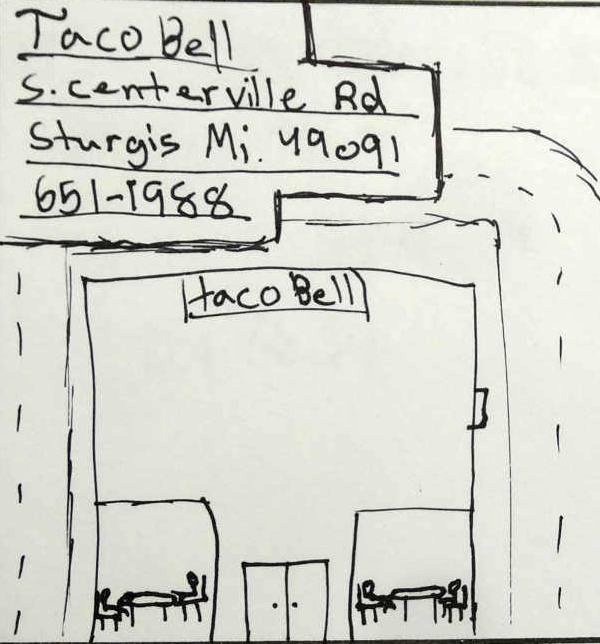 Taco Bell
S. centerville Rd
Sturgis Mi. 49091
651-1988
taco Bell